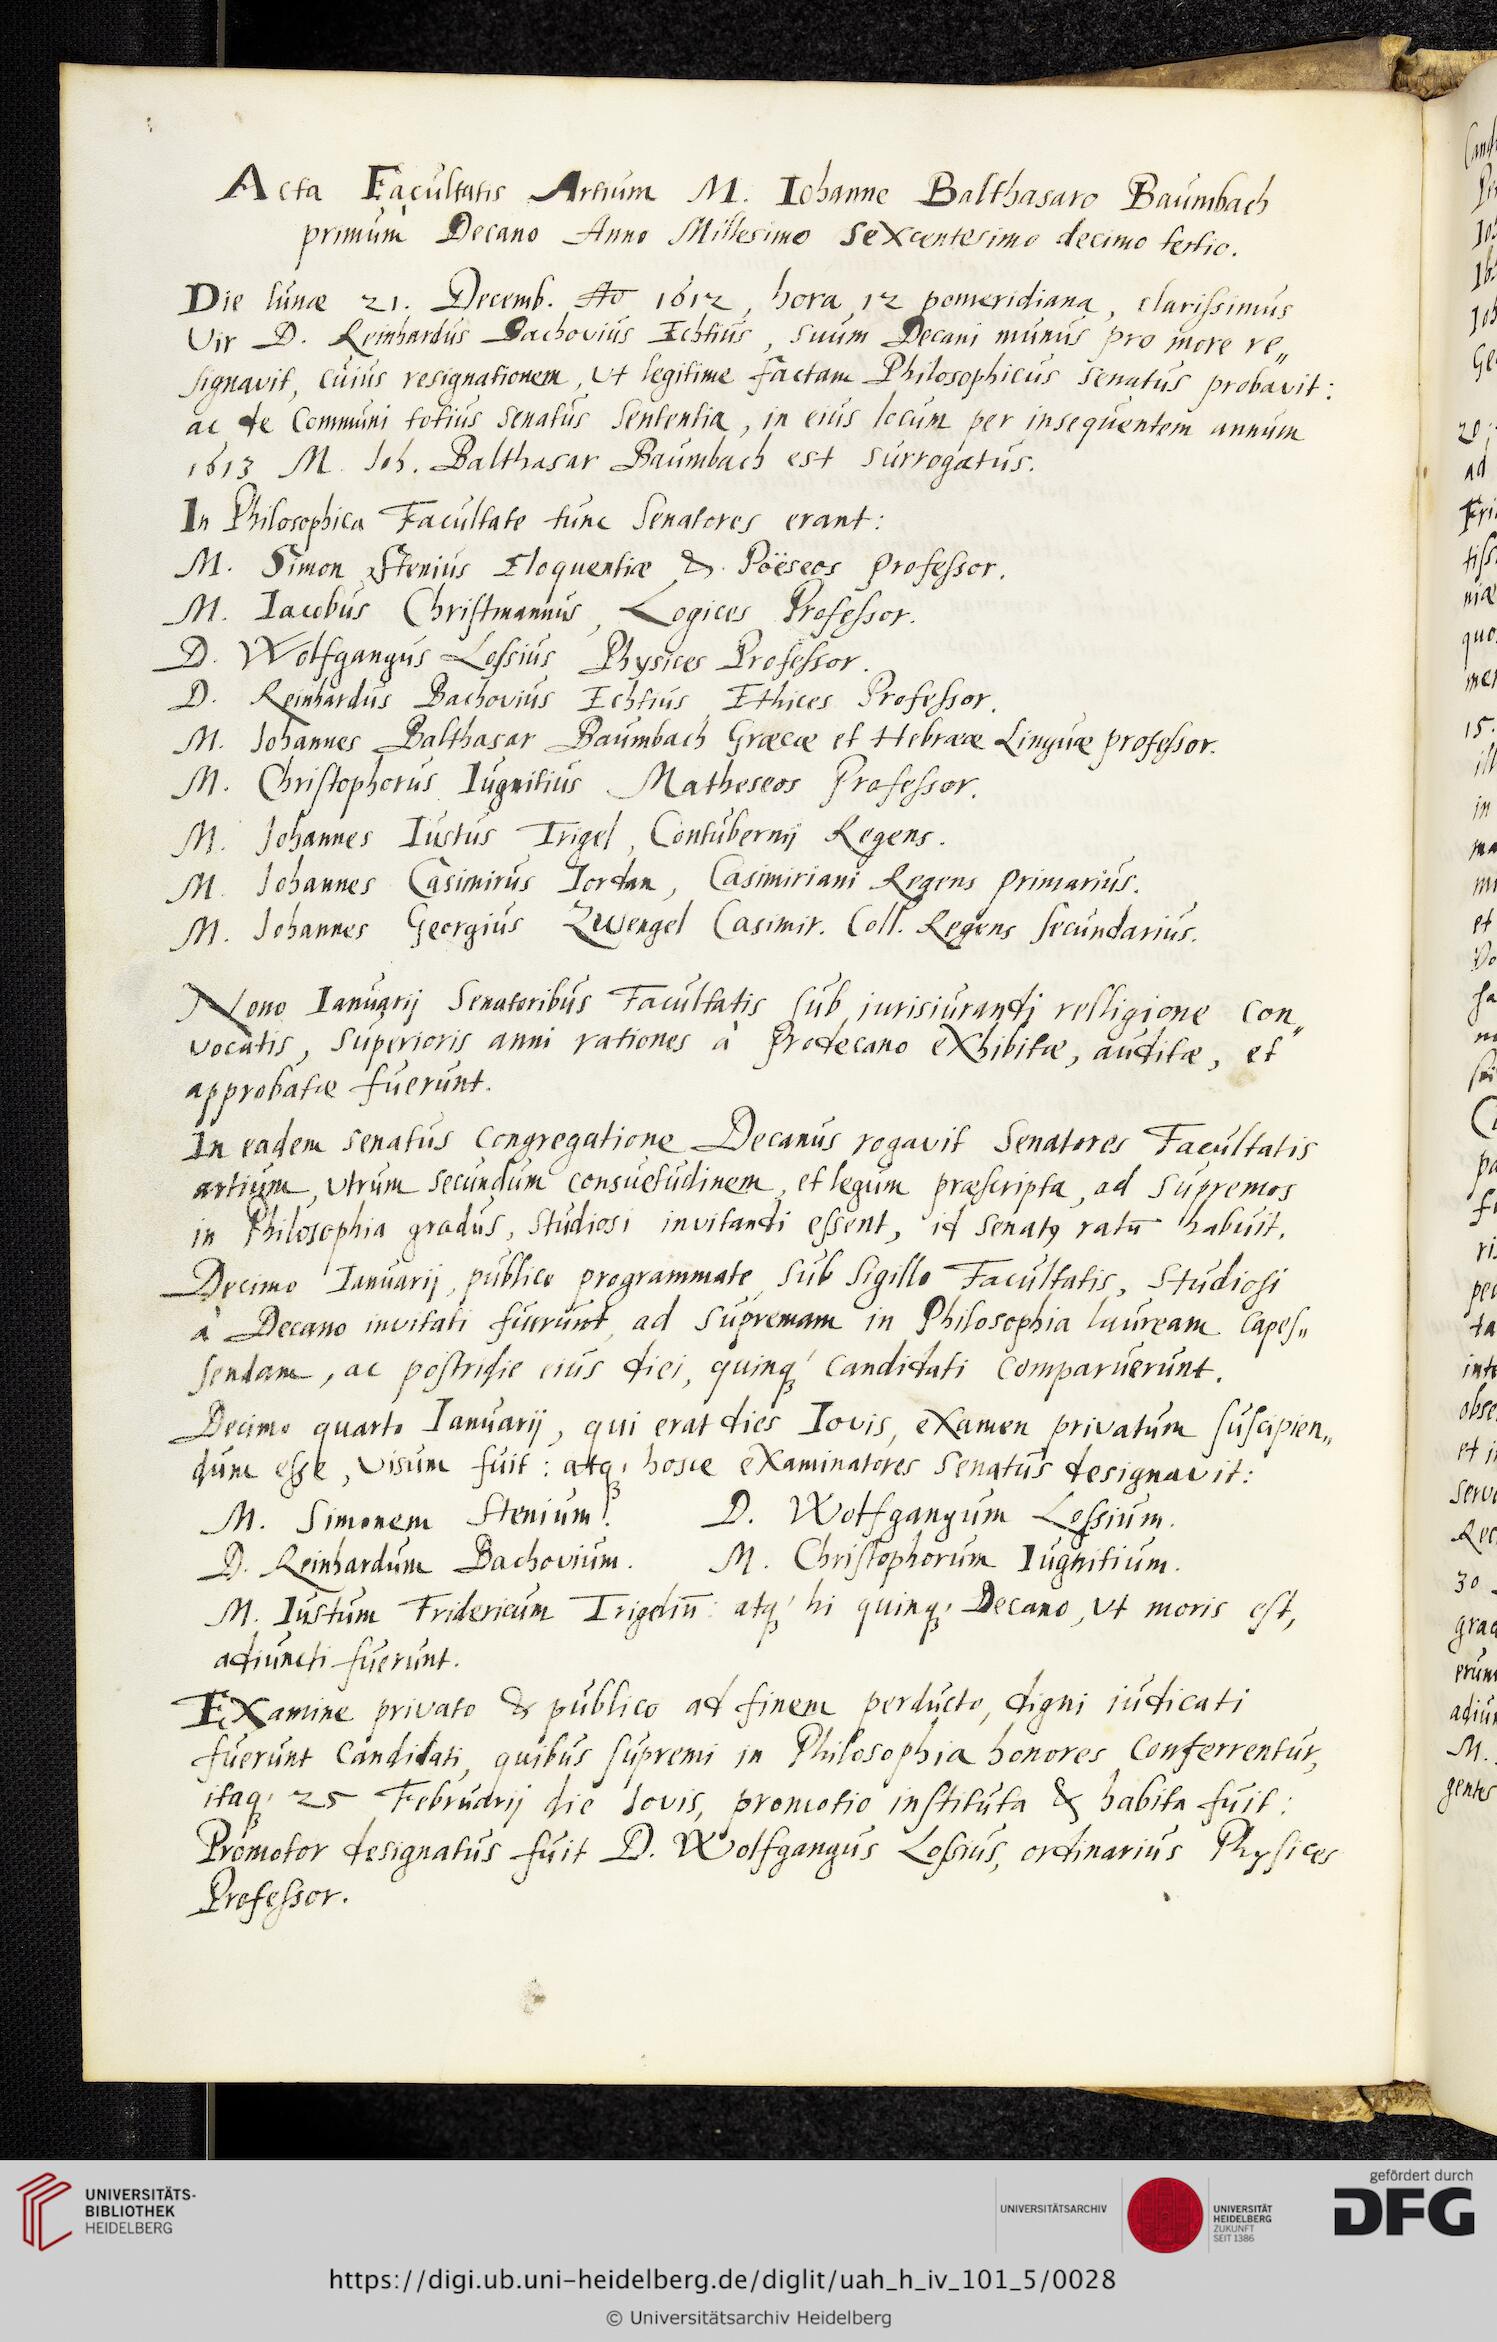 Acta Facultatis Artium M. Iohanne Balthasaro Baumbach
primum Decano Anno Millesimo Sexcentesimo decimo tertio.
Die lunæ 21. Decemb. Ao 1612, hora 12 pomeridiana, clarissimus
Vir D. Reinhardus Bachovius Echtius, suum Decani munus pro more re„
signavit, cuius resignationem, ut legitime factam Philosophicus Senatus probavit:
ac de communi totius senatus sententia, in eius locum per insequentem annum
1613 M. Joh. Balthasar Baumbach est surrogatus.
In Philosophica Facultate tunc Senatores erant:
M. Simon Stenius Eloquentiæ & Poëseos professor.
M. Iacobus Christmannus, Logices Professor.
D. Wolfgangus Lossius Physices Professor.
D. Reinhardus Bachovius Echtius Ethices Professor.
M. Johannes Balthasar Baumbach Græcæ et Hebrææ Linguæ professor.
M. Christophorus Iugnitius Matheseos Professor.
M. Johannes Iustus Trigel, Contubernij Regens.
M. Johannes Casimirus Jordan, Casimiriani Regens primarius.
M. Johannes Georgius Zwengel Casimir. Coll. Regens secundarius.
Nono Ianuarij Senatoribus Facultatis sub iurisiurandi relligione con„
vocatis, superioris anni rationes à Prodecano exhibitæ, auditæ, et
approbatæ fuerunt.
In eadem senatus congregatione Decanus rogavit Senatores Facultatis
artium, utrum secundum consuetudinem, et legum præscripta, ad supremos
in Philosophia gradus, studiosi invitandi essent, id senatꝰ ratū habuit.
Decimo Ianuarij, publico programmate, sub sigillo Facultatis, Studiosi
à Decano invitati fuerunt, ad supremam in Philosophia lauream capes„
sendam, ac postridie eius diei, quinq' candidati comparuerunt.
Decimo quarto Ianuarij, qui erat dies Iovis, examen privatum suscipien„
dum esse, visum fuit: atq' hosce examinatores senatus designavit:
M. Simonem Stenium. D. Wolfgangum Lossium.
D. Reinhardum Bachovium. M. Christophorum Iugnitium.
M. Iustum Fridericum Trigeliū: atq' hi quinq' Decano, ut moris est,
adiuncti fuerunt.
Examine privato & publico ad finem perducto, digni iudicati
fuerunt candidati, quibus supremi in Philosophia honores conferrentur,
itaq' 25 Februarij die Jovis, promotio instituta & habita fuit:
Promotor designatus fuit D. Wolfgangus Lossius, ordinarius Physices
Professor.
UNIVERSITÄTS-
BIBLIOTHEK
HEIDELBERG
UNIVERSITÄTSARCHIV
UNIVERSITÄT
HEIDELBERG
ZUKUNFT
SEIT 1386
gefördert durch
DFG
https://digi.ub.uni-heidelberg.de/diglit/uah_h_iv_101_5/0028
© Universitätsarchiv Heidelberg